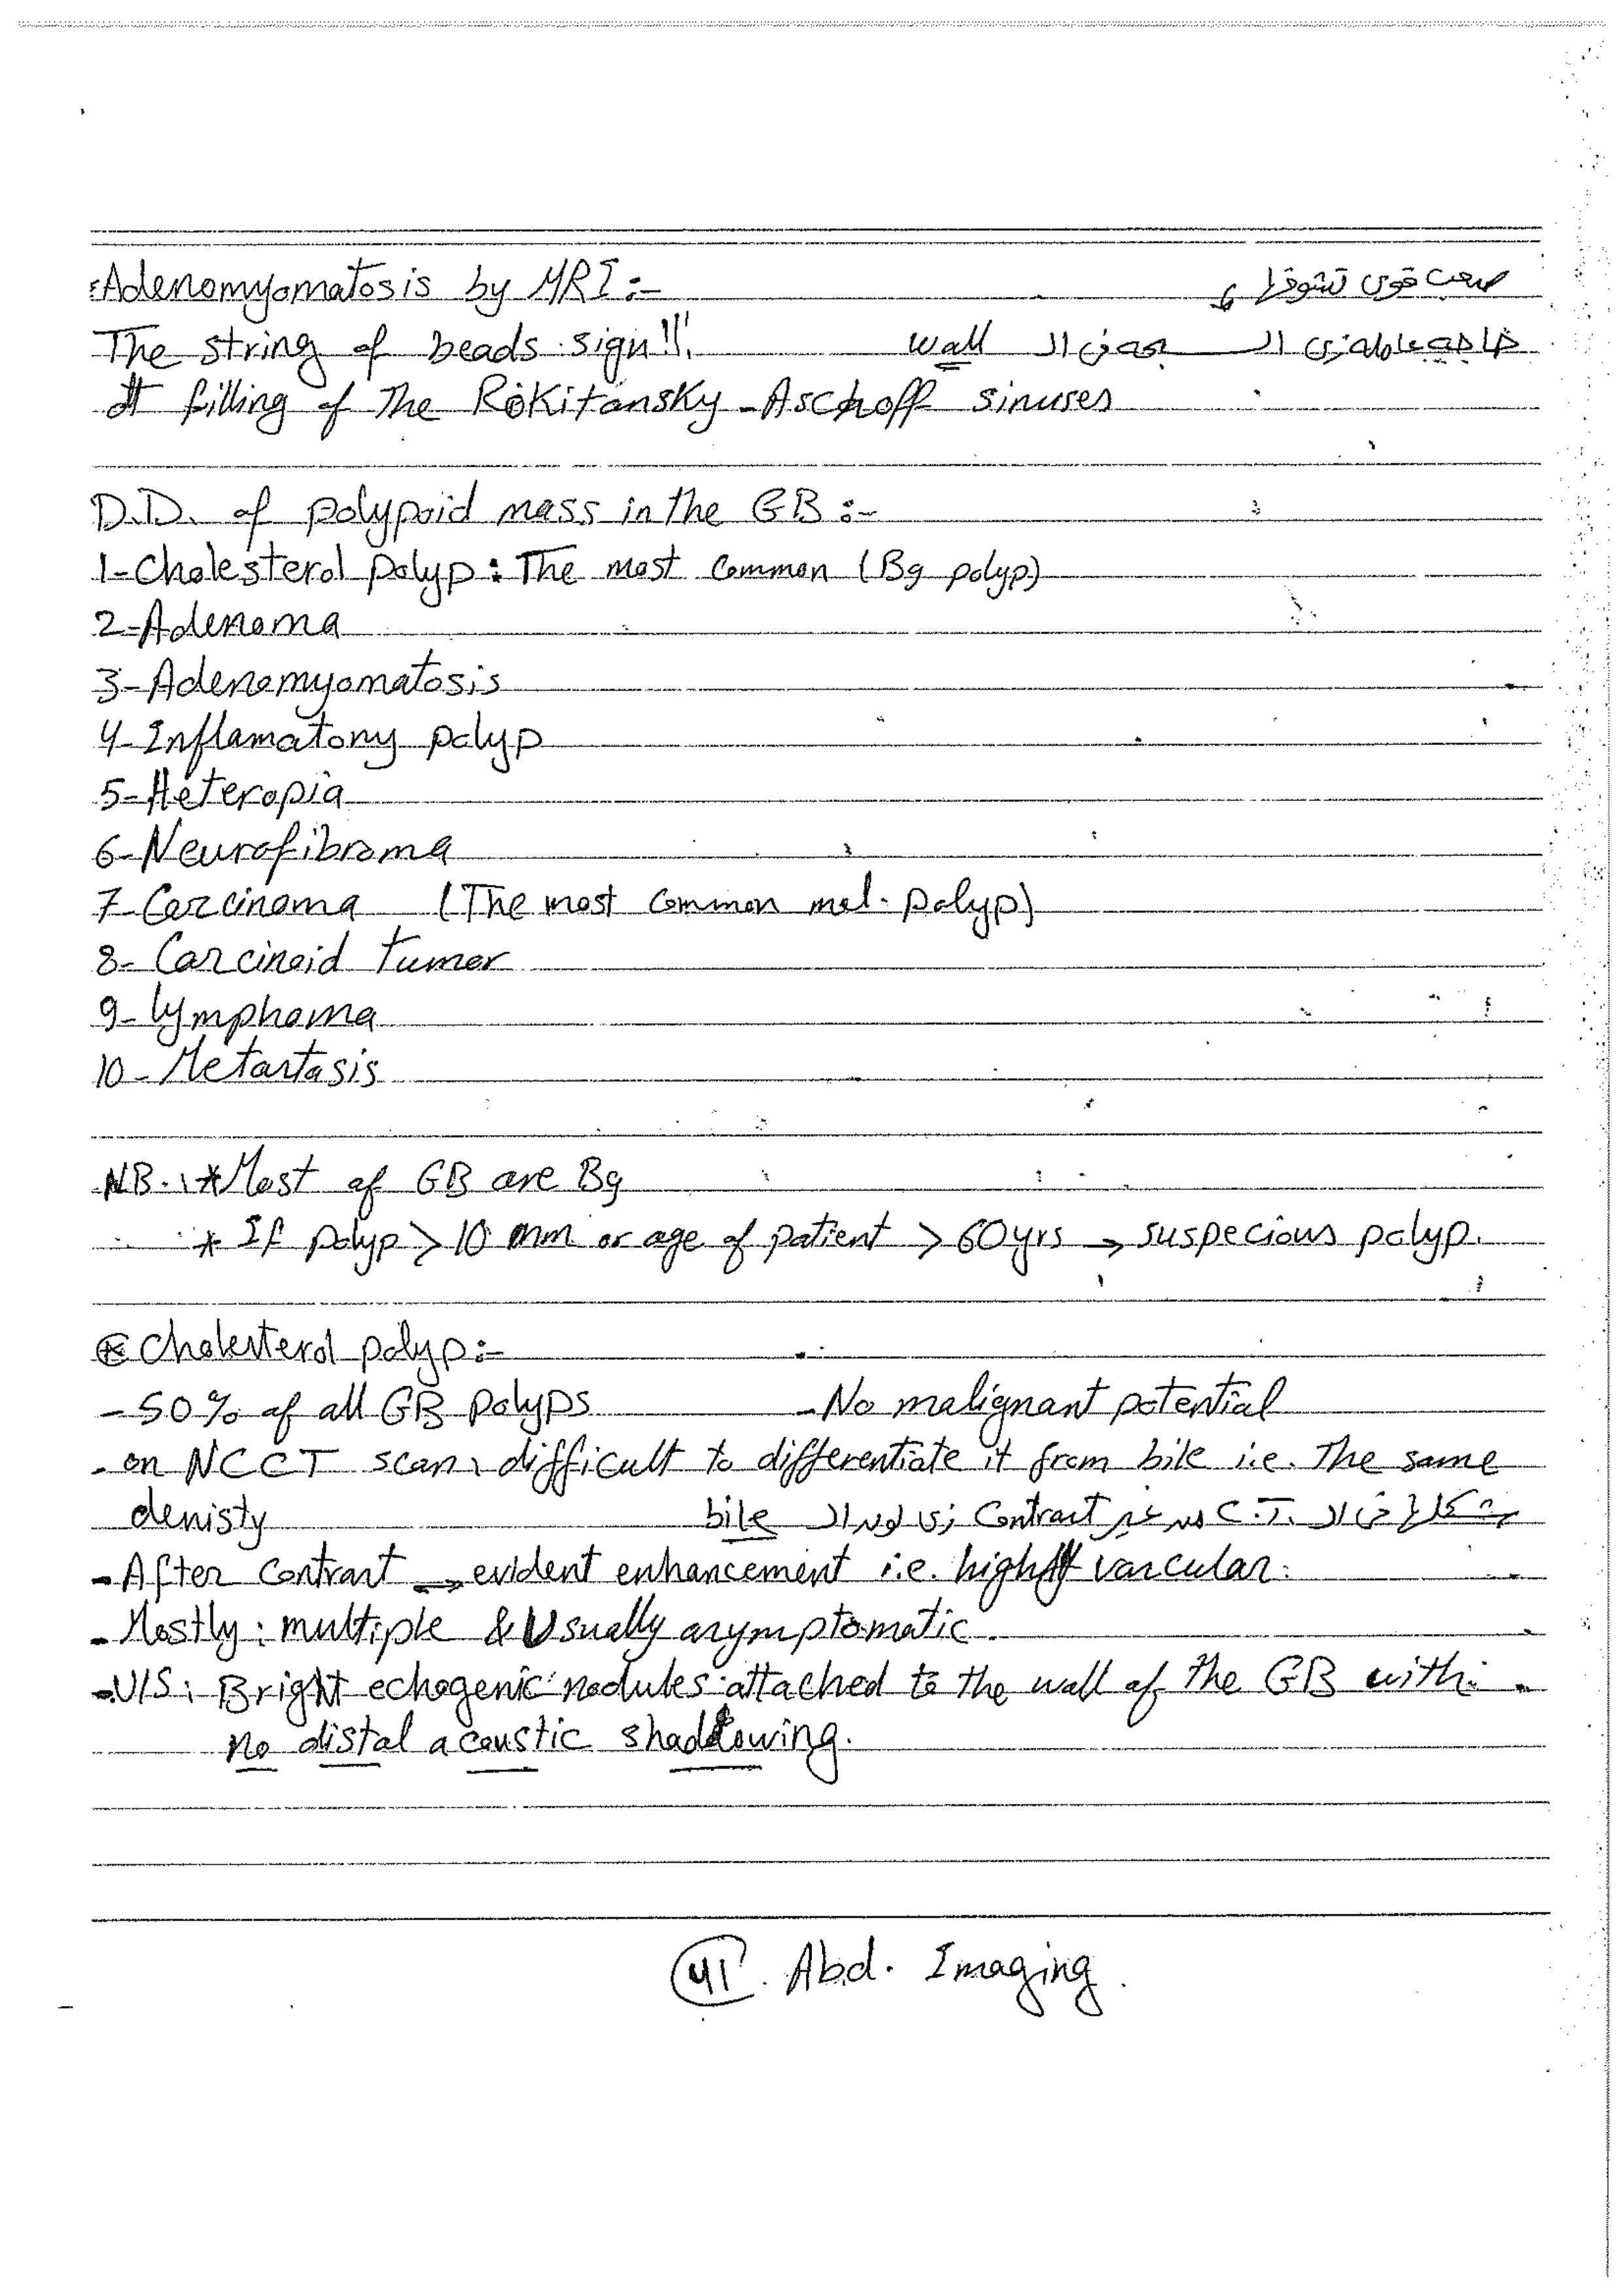 Adenomyomatosis by MRI :- صعب قوى تشوفها
The string of beads sign!!! حاجة عاملة زى الـ جوه فى الـ wall
dt filling of The Rokitansky-Aschoff sinuses
D.D. of polypoid mass in the GB :-
1-Cholesterol polyp: The most common (Bg polyp)
2-Adenoma
3-Adenomyomatosis
4-Inflamatony polyp
5-Heteropia
6-Neurofibroma
7-Carcinoma (The most common mal. polyp)
8- Carcinoid Tumor
9-lymphoma
10-Metastasis
NB.: *Most of GB are Bg
* If polyp > 10 mm or age of patient > 60yrs → suspecious polyp.
* Cholesterol polyp:-
- 50% of all GB polyps - No malignant potential
- on NCCT scan, difficult to differentiate it from bile i.e. The same
denisty شكلها فى الـ C.T. من غير Contrast زى لون الـ bile
- After Contrast → evident enhancement i.e. high vascular.
- Mostly: multiple & Usually asymptomatic.
- U/S: Bright echogenic nodules attached to the wall of the GB with
no distal acoustic shadowing.
41 Abd. Imaging.